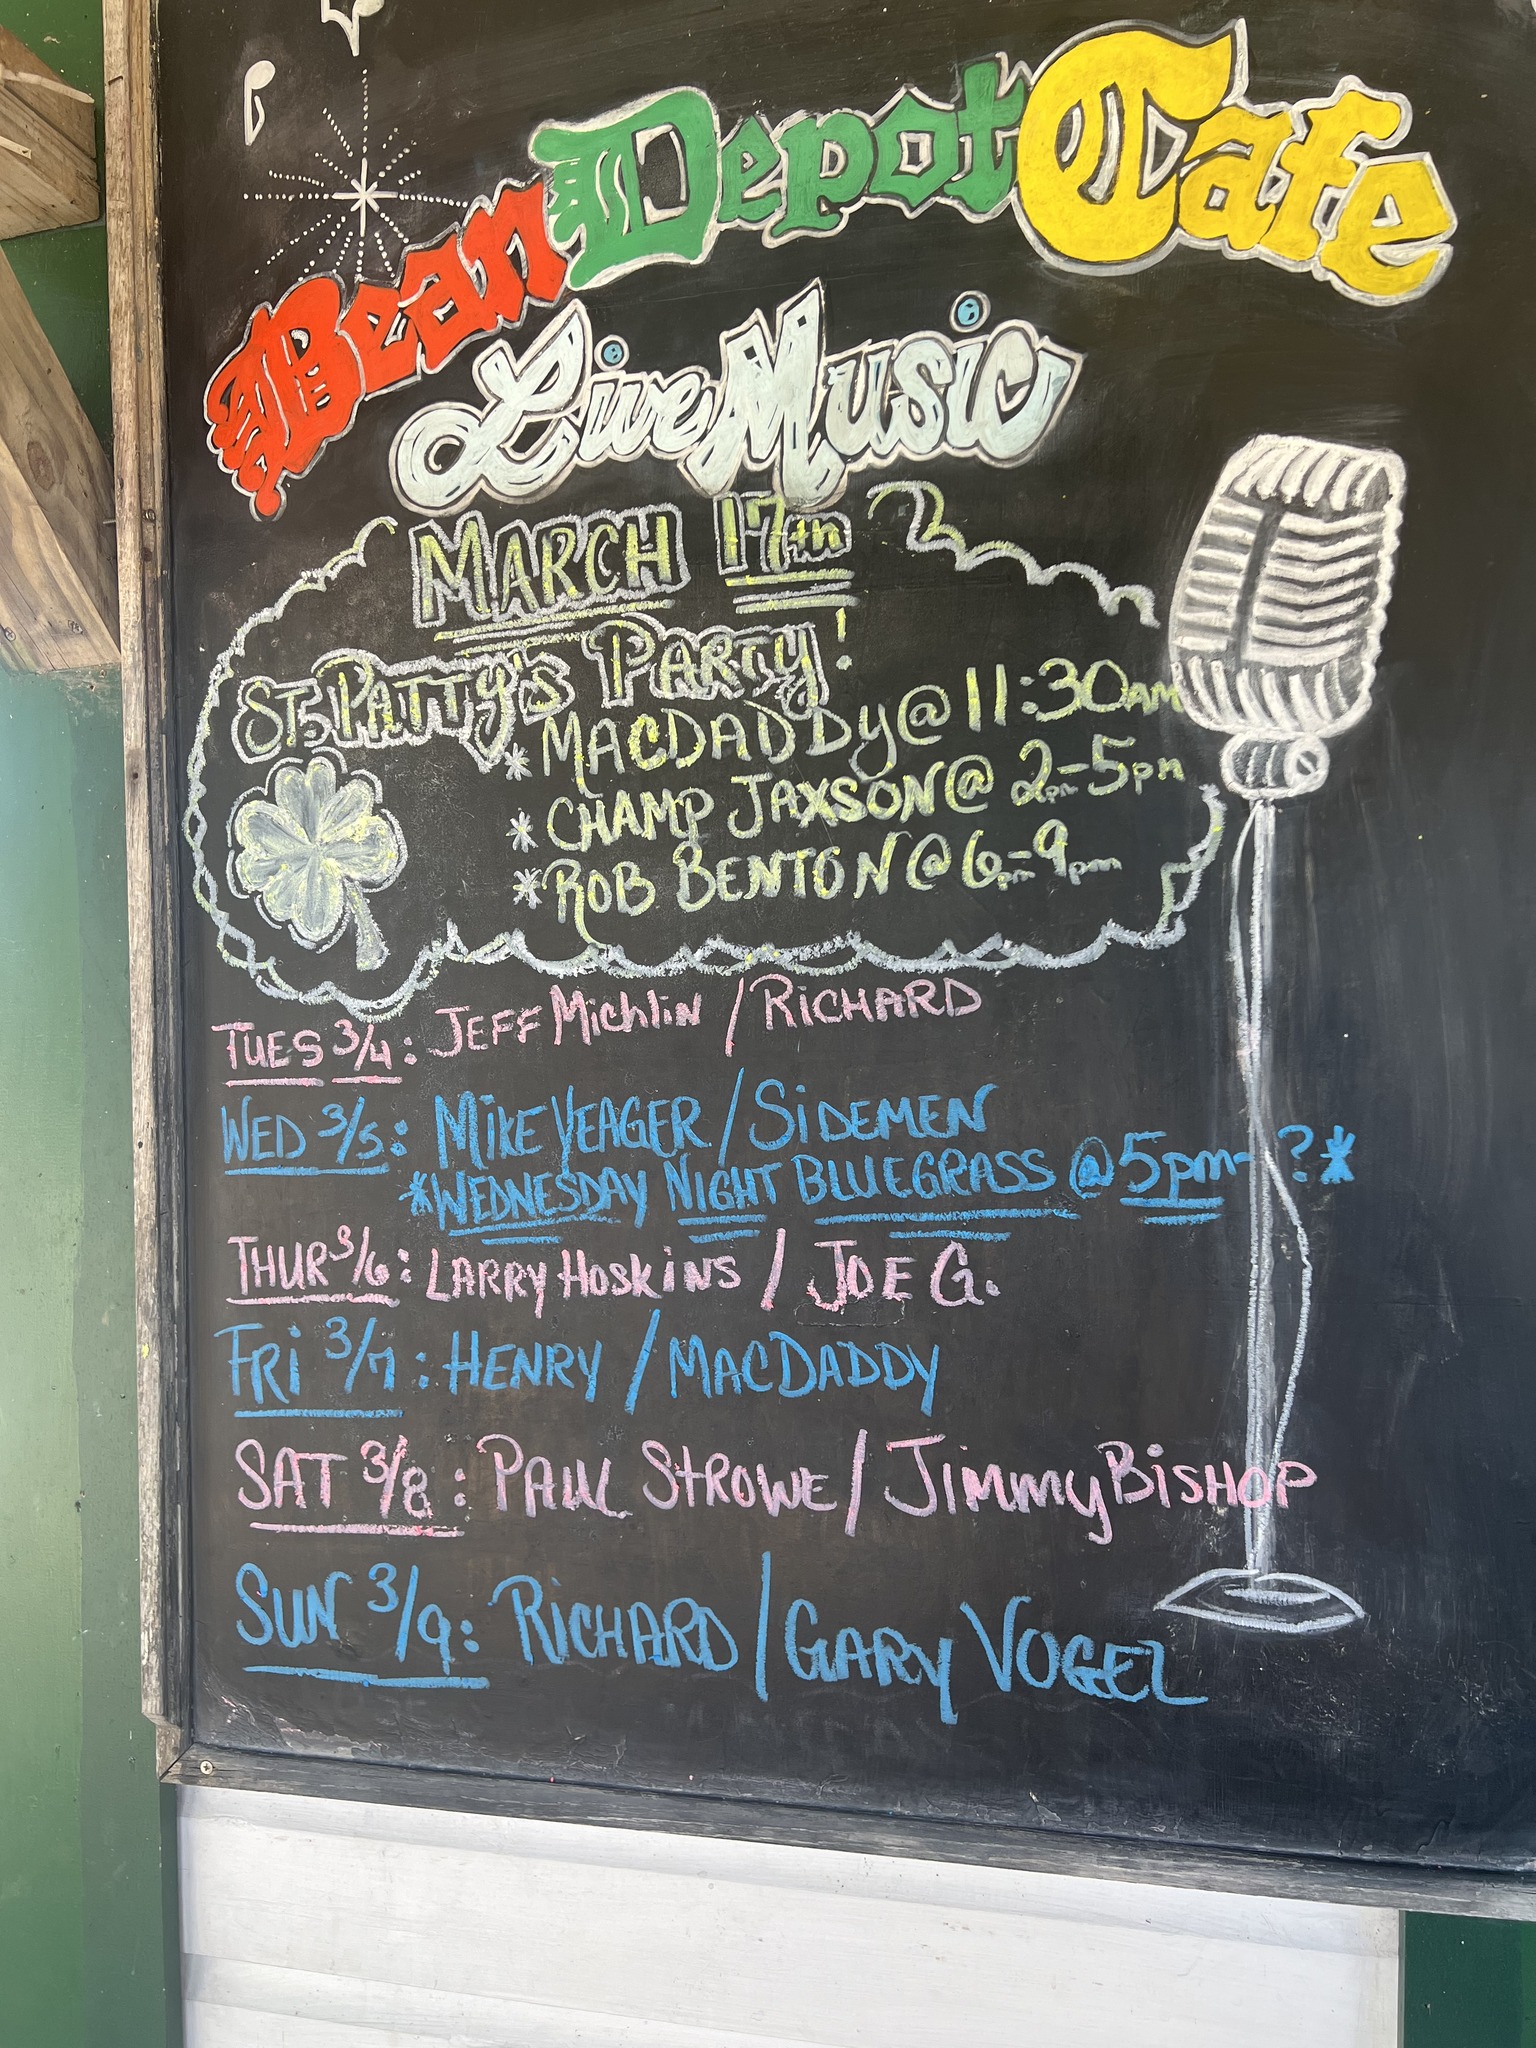 Bean Depot Cafe
Live Music
MARCH 17th
ST. PATTY'S PARTY!
* MACDADDY @ 11:30AM
* CHAMP JAXSON @ 2pm-5pm
* ROB BENTON @ 6pm-9pm
TUES 3/4: JEFF Michlin / RICHARD
WED 3/5: MIKE YEAGER / SIDEMEN
*WEDNESDAY NIGHT BLUEGRASS @ 5pm-?*
THUR 3/6: LARRY HOSKINS / JOE G.
FRI 3/7: HENRY / MACDADDY
SAT 3/8: PAUL STROWE / JIMMY BISHOP
SUN 3/9: RICHARD / GARY VOGEL